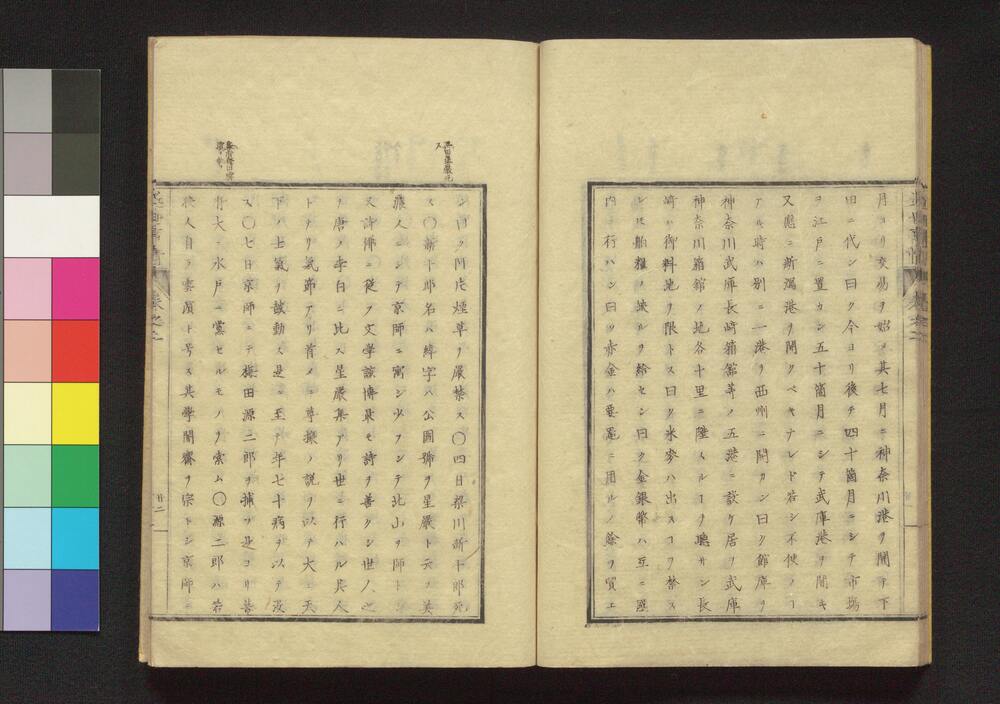 月ヨリ交易ヲ始メ其七月ニ神奈川港ヲ開キ下
田ニ代ン曰ク今ヨリ後チ四十箇月ニシテ市場
ヲ江戸ニ置カン五十箇月ニシテ武庫港ヲ開キ
又應ニ新潟港ヲ開クベキナレド若シ不便ノヿ
アル時ハ別ニ一港ヲ西州ニ開カン曰ク館庫ヲ
神奈川武庫長崎箱館等ノ五港ニ設ケ居ヲ武庫
神奈川箱館ノ地各十里ニ陸スルヿヲ聽サン長
崎ハ御料地ヲ限トス曰ク米麥ハ出スヿヲ禁ス
シ舶糧ノ ルヲ給セン曰ク金銀幣ハ互ニ
内ニ行ハン曰ク赤金ハ ニ用ルノ餘ヲ買ヱ
梁川星巖死ス
シ曰ク阿片煙草ヲ嚴禁ス〇四日梁川新十郎死
ス〇新十郎名ハ緯字ハ公圖號ヲ星巖ト云フ美
濃人ニシテ京師ニ寓シ少フシテ北山ヲ師トシ
又詩佛ニ從フ文學該博最モ詩ヲ善クシ世ノ人之
ヲ唐ノ李白ニ比ス星巖集アリ世ニ行ハル其人
トナリ氣節アリ首メニ尊攘ノ説ヲ以テ大ニ天
下ノ士氣ヲ鼓動ス是ニ至テ年七十病ヲ以テ沒
ス〇七日京師ニテ梅田源二郎ヲ捕フ是ヨリ普
ク大ニ水戸ニ黨セルモノヲ索ム〇源二郎ハ若
狹人自ラ雲濱ト号ス其學闇齋ヲ宗トシ京師ニ
近世事情
卷之二
廿二